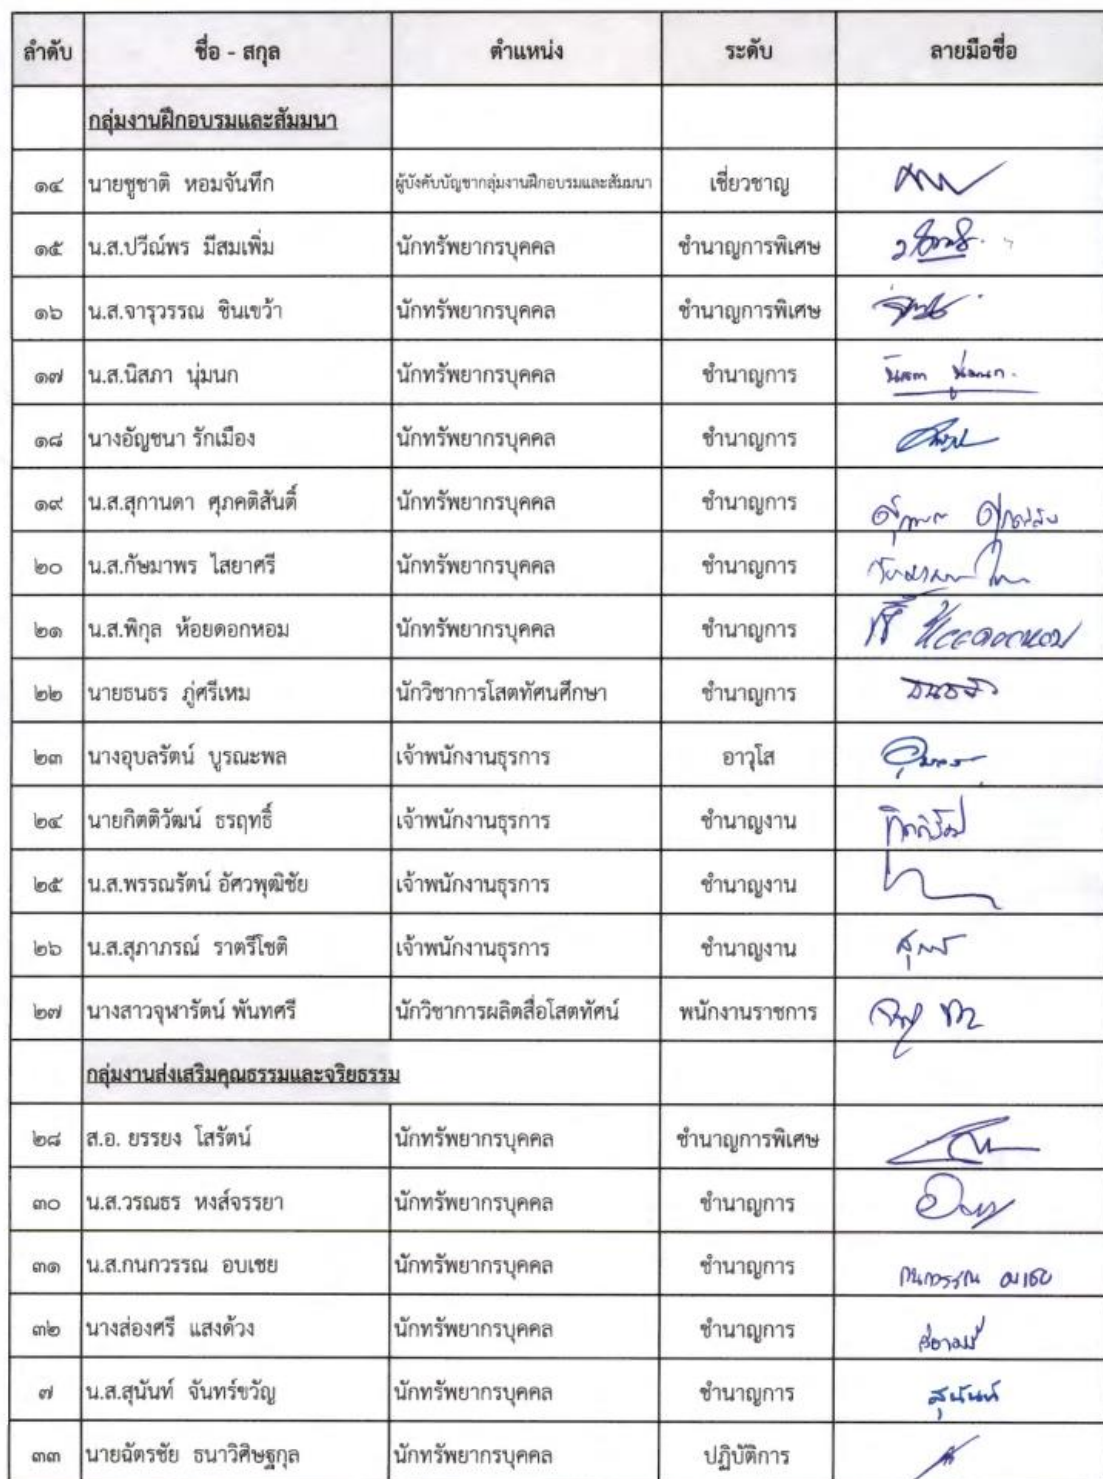 ลำดับ ชื่อ - สกุล ตำแหน่ง ระดับ ลายมือชื่อ
กลุ่มงานฝึกอบรมและสัมมนา
๑๔ นายชูชาติ หอมจันทึก ผู้บังคับบัญชากลุ่มงานฝึกอบรมและสัมมนา เชี่ยวชาญ
๑๕ น.ส.ปวีณ์พร มีสมเพิ่ม นักทรัพยากรบุคคล ชำนาญการพิเศษ
๑๖ น.ส.จารุวรรณ ชินเขว้า นักทรัพยากรบุคคล ชำนาญการพิเศษ
๑๗ น.ส.นิสภา นุ่มนก นักทรัพยากรบุคคล ชำนาญการ นิสภา นุ่มนก
๑๘ นางอัญชนา รักเมือง นักทรัพยากรบุคคล ชำนาญการ
๑๙ น.ส.สุกานดา ศุภคติสันติ์ นักทรัพยากรบุคคล ชำนาญการ
๒๐ น.ส.กัษมาพร ไสยาศรี นักทรัพยากรบุคคล ชำนาญการ
๒๑ น.ส.พิกุล ห้อยดอกหอม นักทรัพยากรบุคคล ชำนาญการ ห้อยดอกหอม
๒๒ นายธนธร ภู่ศรีเหม นักวิชาการโสตทัศนศึกษา ชำนาญการ
๒๓ นางอุบลรัตน์ บูรณะพล เจ้าพนักงานธุรการ อาวุโส
๒๔ นายกิตติวัฒน์ ธรฤทธิ์ เจ้าพนักงานธุรการ ชำนาญงาน
๒๕ น.ส.พรรณรัตน์ อัศวพุฒิชัย เจ้าพนักงานธุรการ ชำนาญงาน
๒๖ น.ส.สุภาภรณ์ ราตรีโชติ เจ้าพนักงานธุรการ ชำนาญงาน
๒๗ นางสาวจุฬารัตน์ พันทศรี นักวิชาการผลิตสื่อโสตทัศน์ พนักงานราชการ
กลุ่มงานส่งเสริมคุณธรรมและจริยธรรม
๒๘ ส.อ. ยรรยง โสรัตน์ นักทรัพยากรบุคคล ชำนาญการพิเศษ
๓๐ น.ส.วรณธร หงส์จรรยา นักทรัพยากรบุคคล ชำนาญการ
๓๑ น.ส.กนกวรรณ อบเชย นักทรัพยากรบุคคล ชำนาญการ กนกวรรณ อบเชย
๓๒ นางส่องศรี แสงด้วง นักทรัพยากรบุคคล ชำนาญการ
๗ น.ส.สุนันท์ จันทร์ขวัญ นักทรัพยากรบุคคล ชำนาญการ สุนันท์
๓๓ นายฉัตรชัย ธนาวิศิษฐกุล นักทรัพยากรบุคคล ปฏิบัติการ